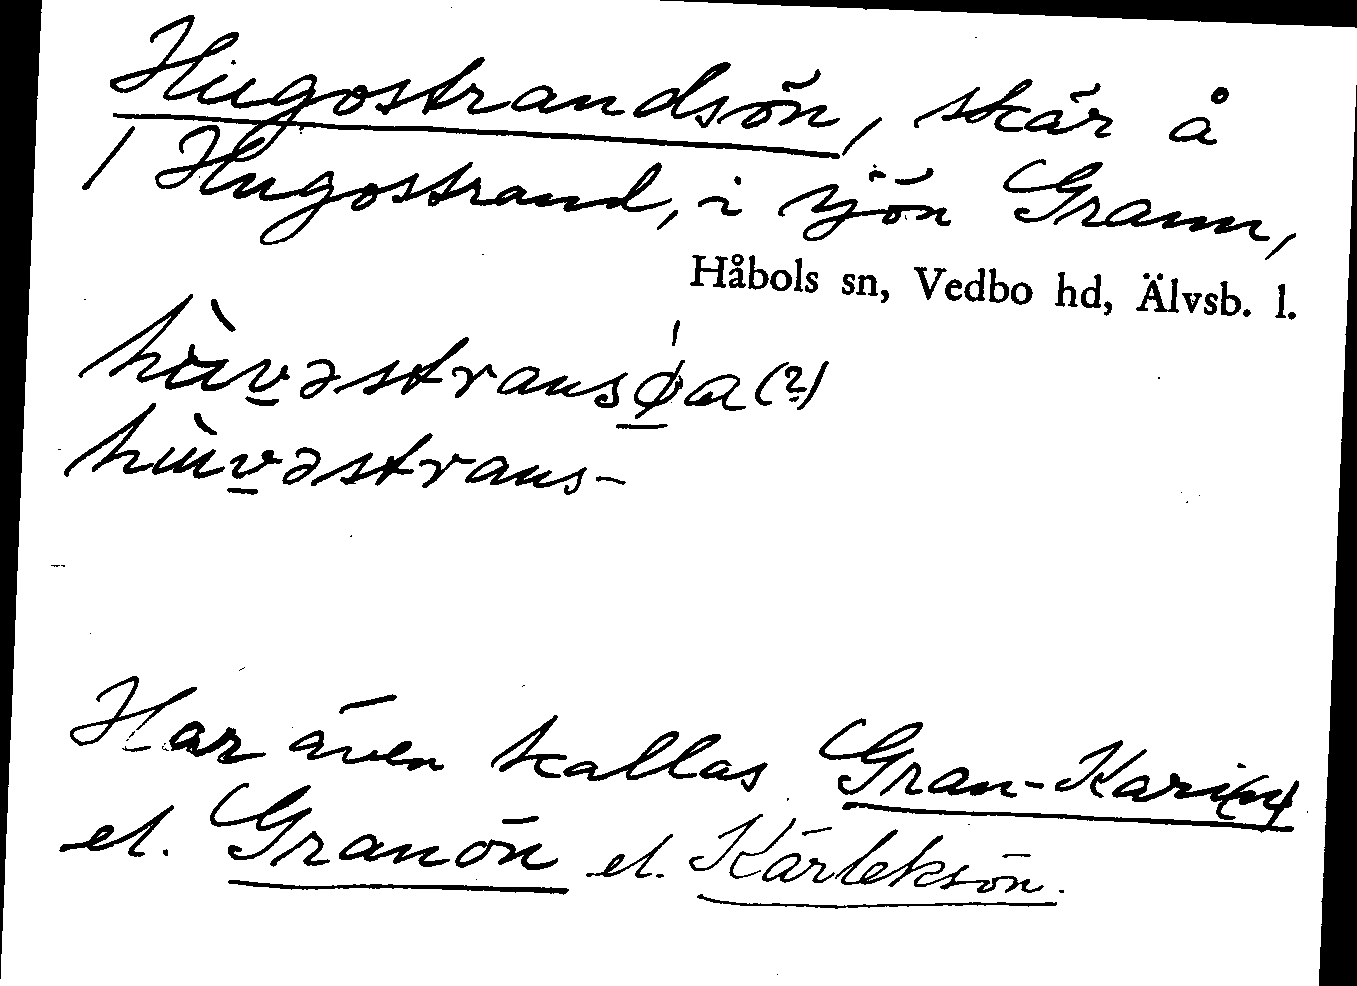 Hugostrandsön, skär å
/ Hugostrand, i sjön Grann,
Håbols sn, Vedbo hd, Älvsb. l.
hùvəstransø̍a (?)
hùvəstrans-
Har även kallas Gran-Kari(n)
el. Granön el. Kärleksön.